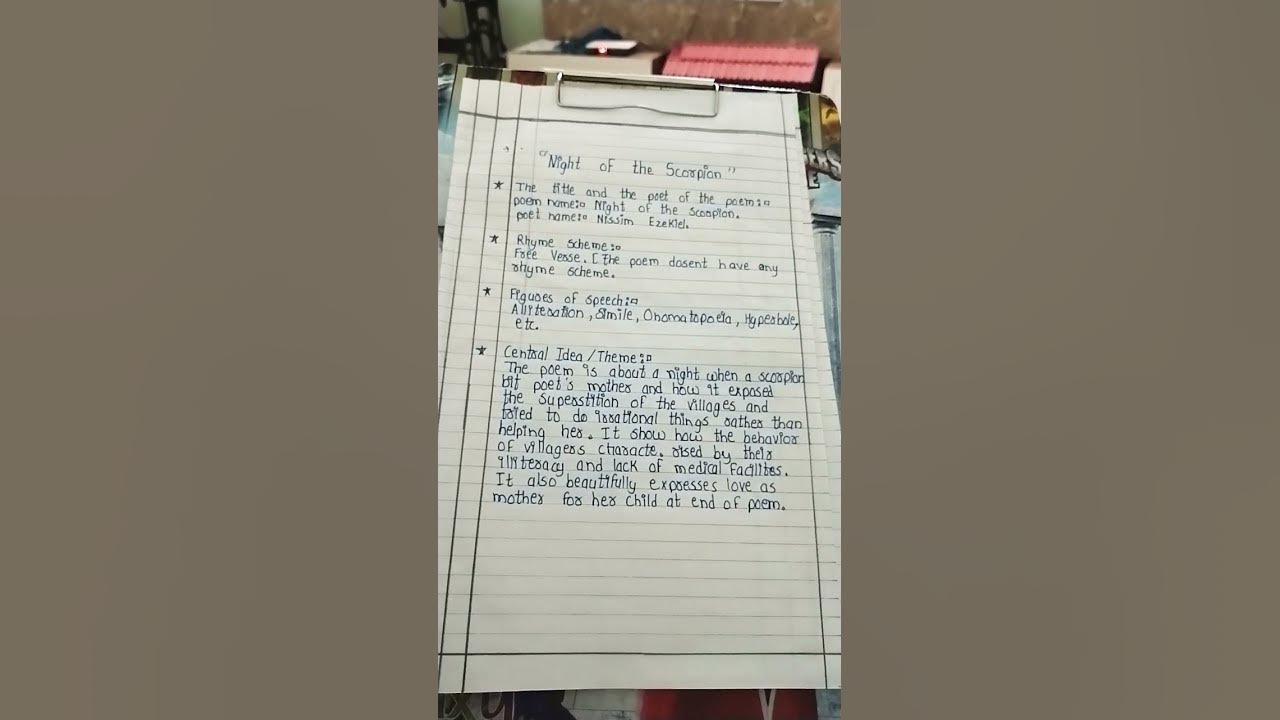 "Night of the Scorpion"
★ The title and the poet of the poem:-
poem name:- Night of the Scorpion.
poet name:- Nissim Ezekiel.
★ Rhyme Scheme:-
Free Verse. [The poem dosent have any
rhyme scheme.
★ Figures of speech:-
Alliteration, Simile, Onomatopoeia, Hyperbole,
etc.
★ Central Idea/Theme:-
The poem is about a night when a scorpion
bit poet's mother and how it exposed
the superstition of the villages and
tried to do irrational things rather than
helping her. It show how the behavior
of villagers characte. rised by their
illiteracy and lack of medical facilites.
It also beautifully expresses love as
mother for her child at end of poem.